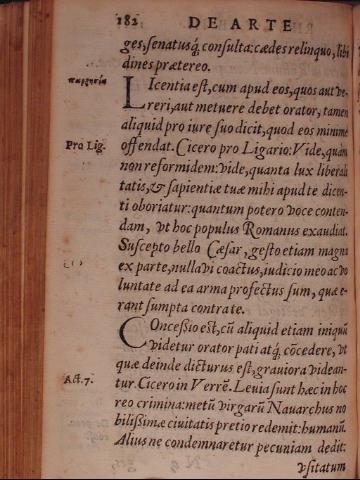 182 DE ARTE
ges, senatusq́; consulta: cædes relinquo, libi
dines prætereo.
παρρησία
LIcentia est, cum apud eos, quos aut ve-
reri, aut metuere debet orator, tamen
aliquid pro iure suo dicit, quod eos minime
Pro Lig. offendat. Cicero pro Ligario: Vide, quàm
non reformidem: vide, quanta lux liberali
tatis, & sapientiæ tuæ mihi apud te dicen-
ti oboriatur: quantum potero voce conten-
dam, vt hoc populus Romanus exaudiat.
Suscepto bello Cæsar, gesto etiam magna
ex parte, nulla vi coactus, iudicio meo ac vo
luntate ad ea arma profectus sum, quæ e-
rant sumpta contra te.
COncessio est, cũ aliquid etiam iniquũ
videtur orator pati atq́; cõcedere, vt
quæ deinde dicturus est, grauiora videan-
Act. 7. tur. Cicero in Verrẽ. Leuia sunt hæc in hoc
reo crimina: metũ virgarũ Nauarchus no
bilissimæ ciuitatis pretio redemit: humanũ.
Alius ne condemnaretur pecuniam dedit:
vsitatum